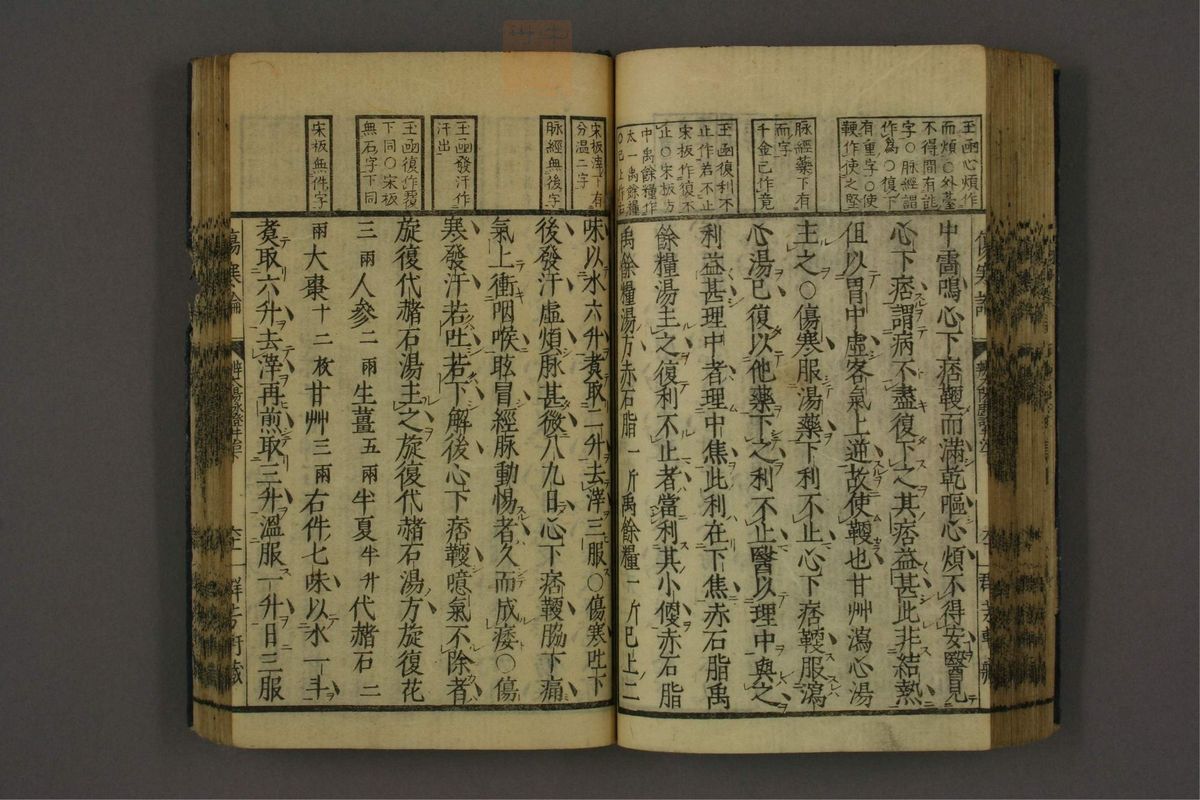 玉函心煩作
而煩○外臺
不得間有能
字○脉經謂
作爲○復下
有重字○使
鞕作使之堅
脉經藥下有
而字
千金已作竟
玉函復利不
止作若不止
宋板作復不
止○宋板方
中禹餘糧作
太一禹餘糧
中雷鳴心下痞鞕而滿乾嘔心煩不得安醫見
心下痞謂病不盡復下之其痞益甚此非結熱
但以胃中虛客氣上逆故使鞕也甘艸瀉心湯
主之○傷寒服湯藥下利不止心下痞鞕服瀉
心湯已復以他藥下之利不止醫以理中與之
利益甚理中者理中焦此利在下焦赤石脂禹
餘糧湯主之復利不止者當利其小便赤石脂
禹餘糧湯方赤石脂一斤禹餘糧一斤已上二
宋板滓下有
分温二字
脉經無後字
玉函發汗作
汗出
玉函復作覆
下同○宋板
無石字下同
宋板無件字
味以水六升煑取二升去滓三服○傷寒吐下
後發汗虛煩脉甚微八九日心下痞鞕脇下痛
氣上衝咽喉眩冒經脉動惕者久而成痿○傷
寒發汗若吐若下解後心下痞鞕噫氣不除者
旋復代赭石湯主之旋復代赭石湯方旋復花
三兩人參二兩生薑五兩半夏半升代赭石二
兩大棗十二枚甘艸三兩右件七味以水一斗
煑取六升去滓再煎取三升溫服一升日三服
傷寒論